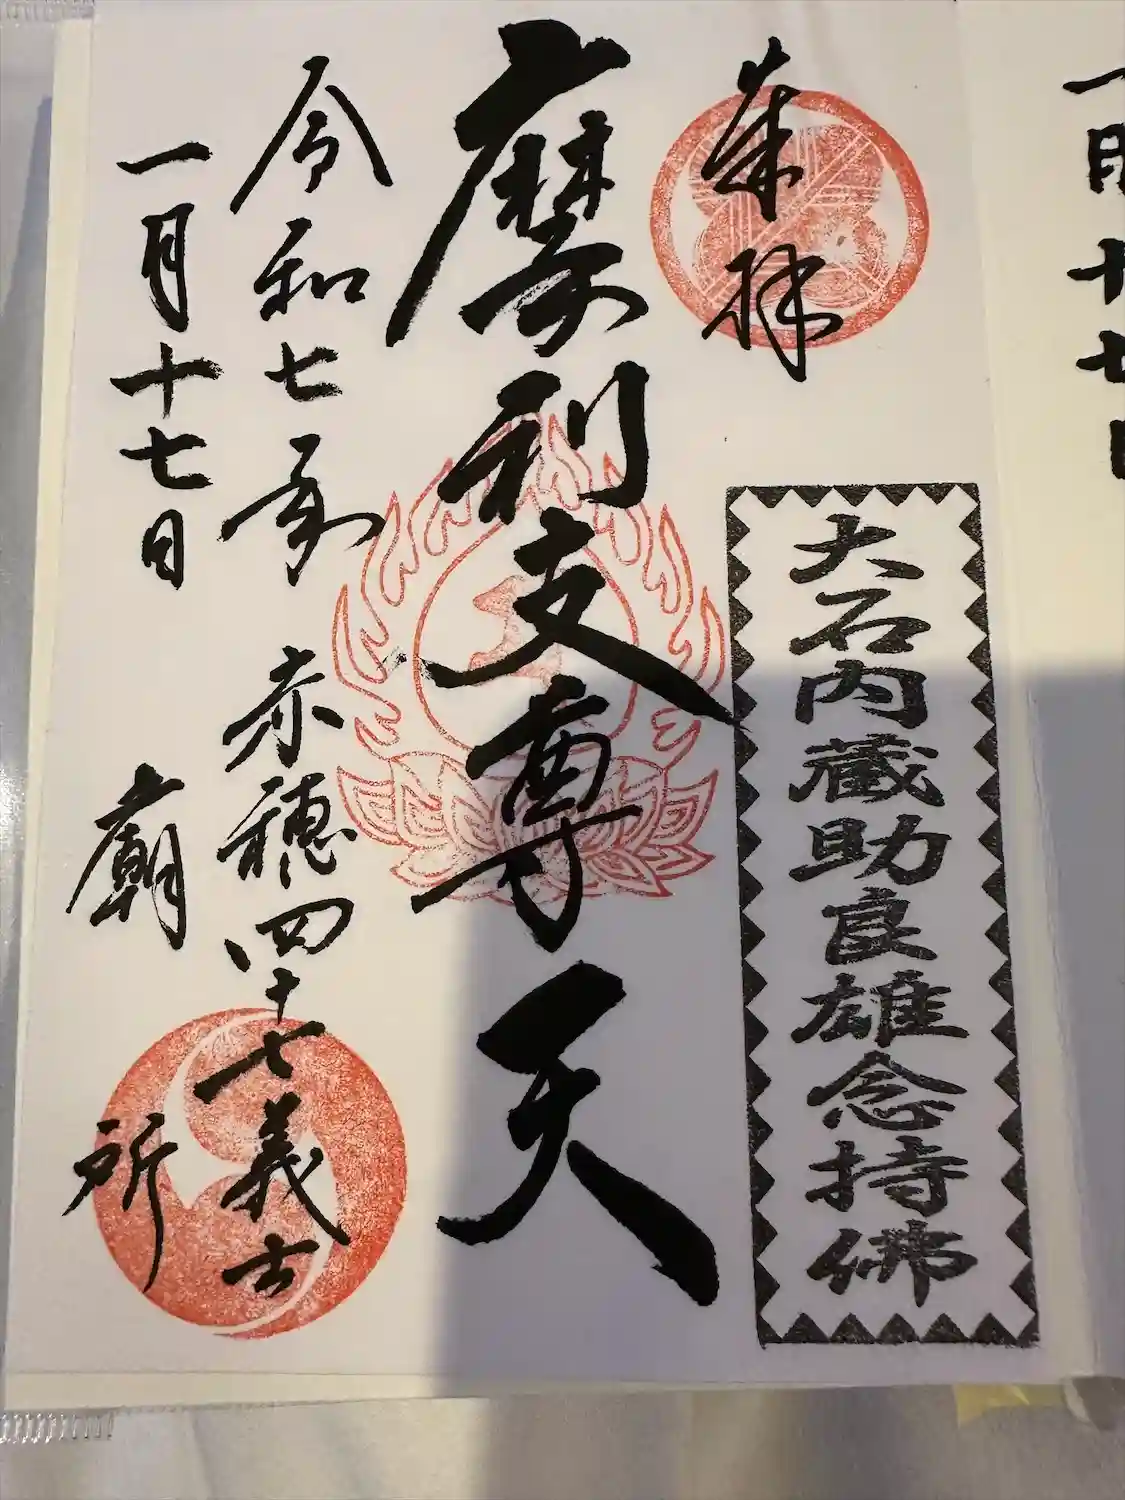 一月十七日
奉拝
大石内蔵助良雄念持佛
摩利支尊天
令和七年 赤穂四十七義士
一月十七日 廟所